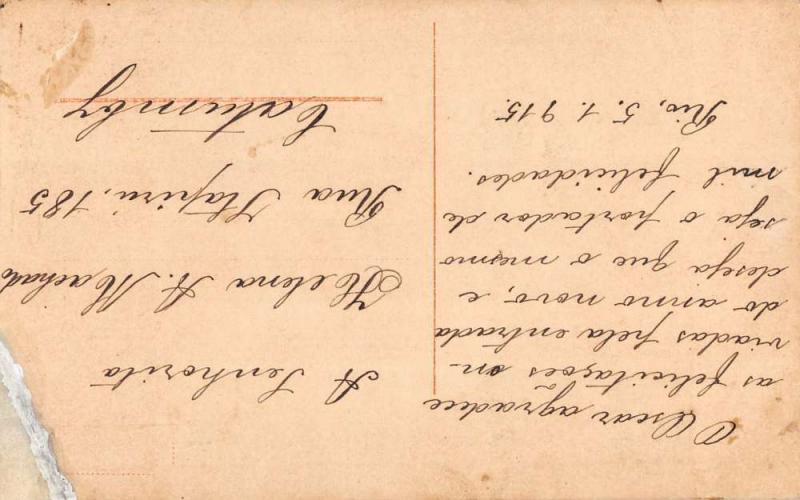 Oscar agradece
as felicitações en-
viadas pela entrada
do anno novo, e
deseja que o mesmo
seja o portador de
mil felicidades.
Rio, 5. 1. 915
A Senhorita
Helena A. Machado
Rua Itapirú, 185
Catumby